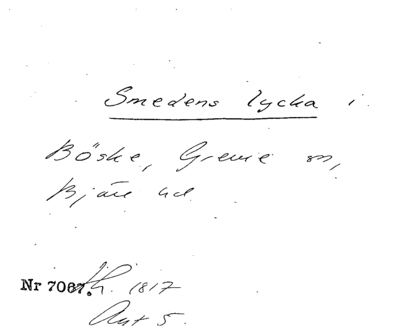 Smedens lycka i
Böske, Grevie sn,
Bjäre hd
Nr 7067. h. 1817
Avt 5.